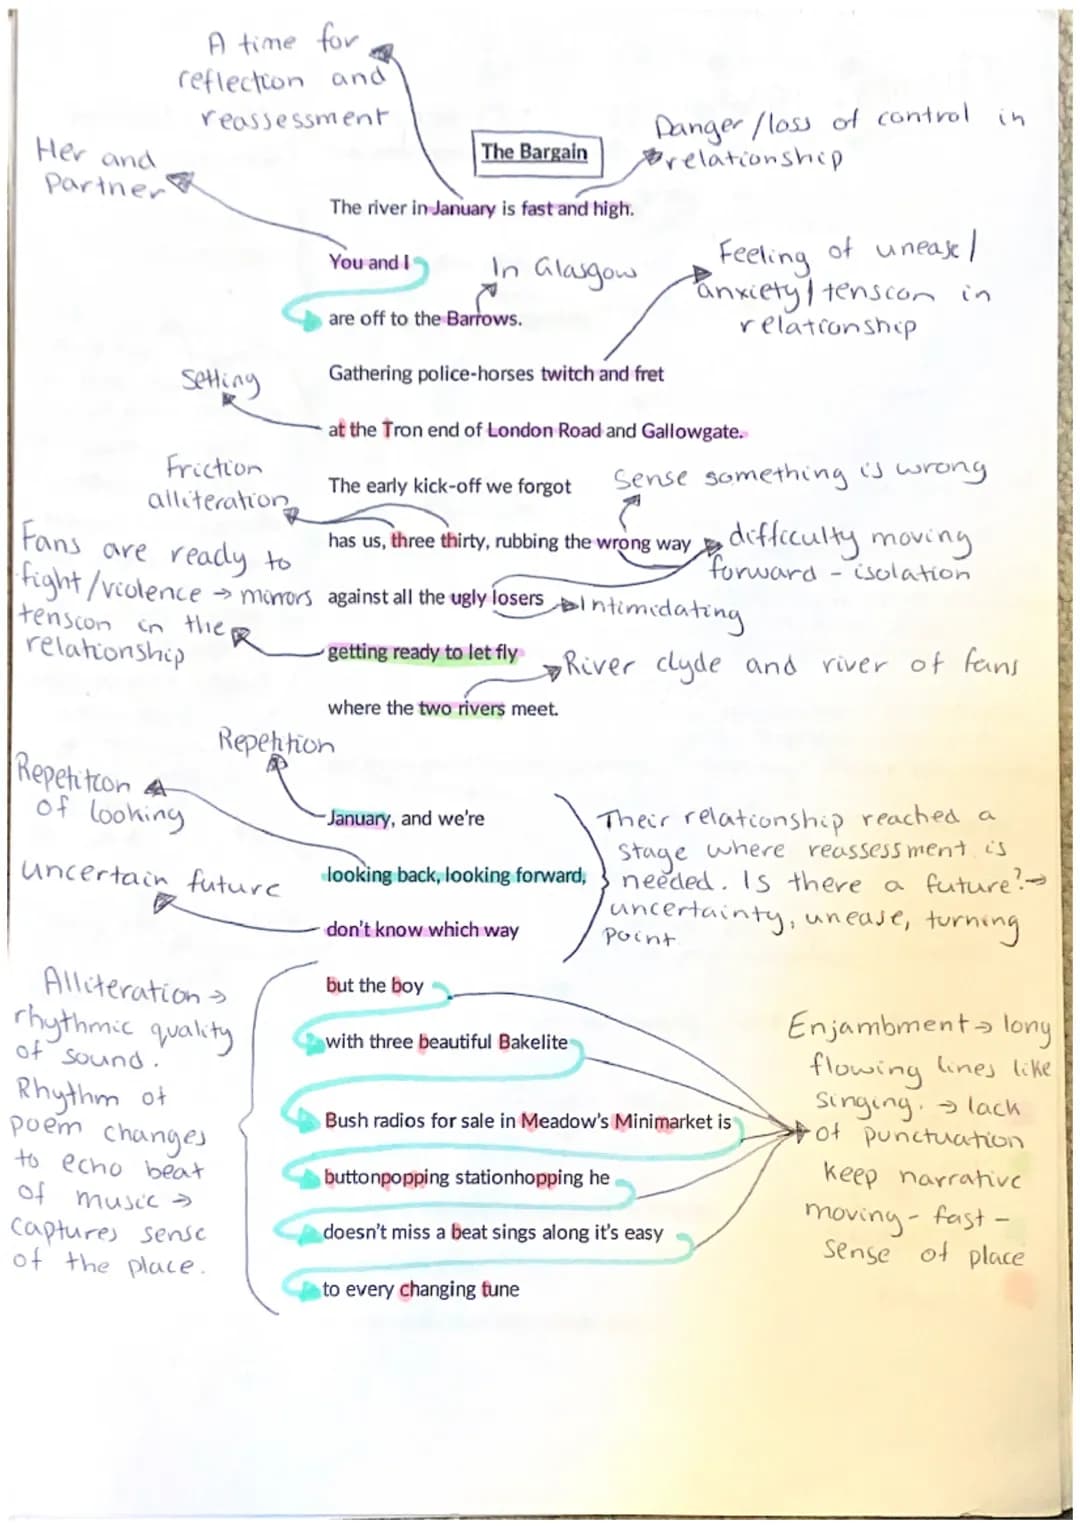 A time for
reflection and
reassessment
The Bargain
Danger/loss of control in
relationship
Her and
Partner
The river in January is fast and high.
You and I
In Glasgow
Feeling of unease/
anxiety/tension in
relationship
are off to the Barrows.
Gathering police-horses twitch and fret
Setting
at the Tron end of London Road and Gallowgate.
Friction
alliteration
The early kick-off we forgot
Sense something is wrong
has us, three thirty, rubbing the wrong way
difficulty moving
forward - isolation
Fans are ready to
fight/violence → mirrors
tension in the
relationship
against all the ugly losers
Intimidating
getting ready to let fly
River clyde and river of fans
where the two rivers meet.
Repetition
Repetition
of looking
January, and we're
looking back, looking forward,
don't know which way
Their relationship reached a
stage where reassessment is
needed. Is there a future? →
uncertainty, unease, turning
point
uncertain future
but the boy
with three beautiful Bakelite
Bush radios for sale in Meadow's Minimarket is
buttonpopping stationhopping he
doesn't miss a beat sings along it's easy
to every changing tune
Alliteration →
rhythmic quality
of sound.
Rhythm of
poem changes
to echo beat
of music →
captures sense
of the place.
Enjambment → long
flowing lines like
singing. → lack
of punctuation
keep narrative
moving - fast -
sense of place